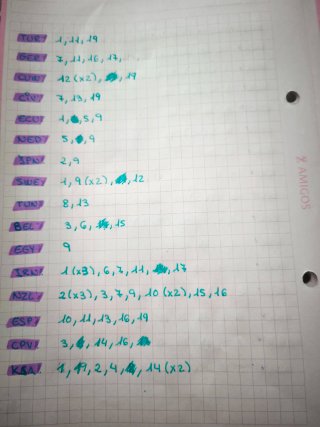 TUR 1, 11, 19
GER 7, 11, 16, 17,
CUW 12 (x2), 19
CIV 7, 13, 19
ECU 1, 5, 9
NED 5, 9
JPN 2, 9
SWE 1, 9 (x2), 12
TUN 8, 13
BEL 3, 6, 15
EGY 9
IRN 1 (x3), 6, 7, 11, 17
NZL 2 (x3), 3, 7, 9, 10 (x2), 15, 16
ESP 10, 11, 13, 16, 19
CPV 3, 14, 16,
KSA 1, 11, 2, 4, 14 (x2)
X AMIGOS